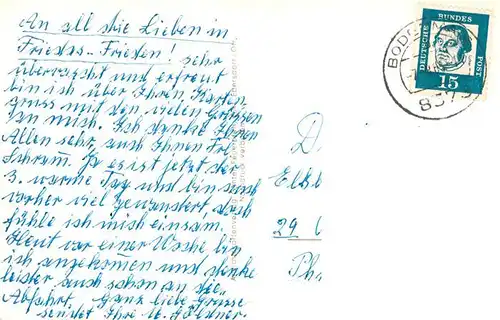 An all die Lieben in
Friedas-Frieden! Sehr
überrascht und erfreut
bin ich über Ihren Karten
gruss mit den vielen Grüssen
an mich. Ich danke Ihnen
Allen sehr, auch Ihnen Frl.
Schramm. Ja es ist jetzt der
3. warme Tag und bin auch
vorher viel gewandert, doch
fühle ich mich einsam.
Heut vor einer Woche bin
ich angekommen und denke
leider auch schon an die
Abfahrt. Ganz liebe Grüsse
sendet Ihre
BODEN
837
DEUTSCHE BUNDES POST
15
D.
Elb
29
Ph